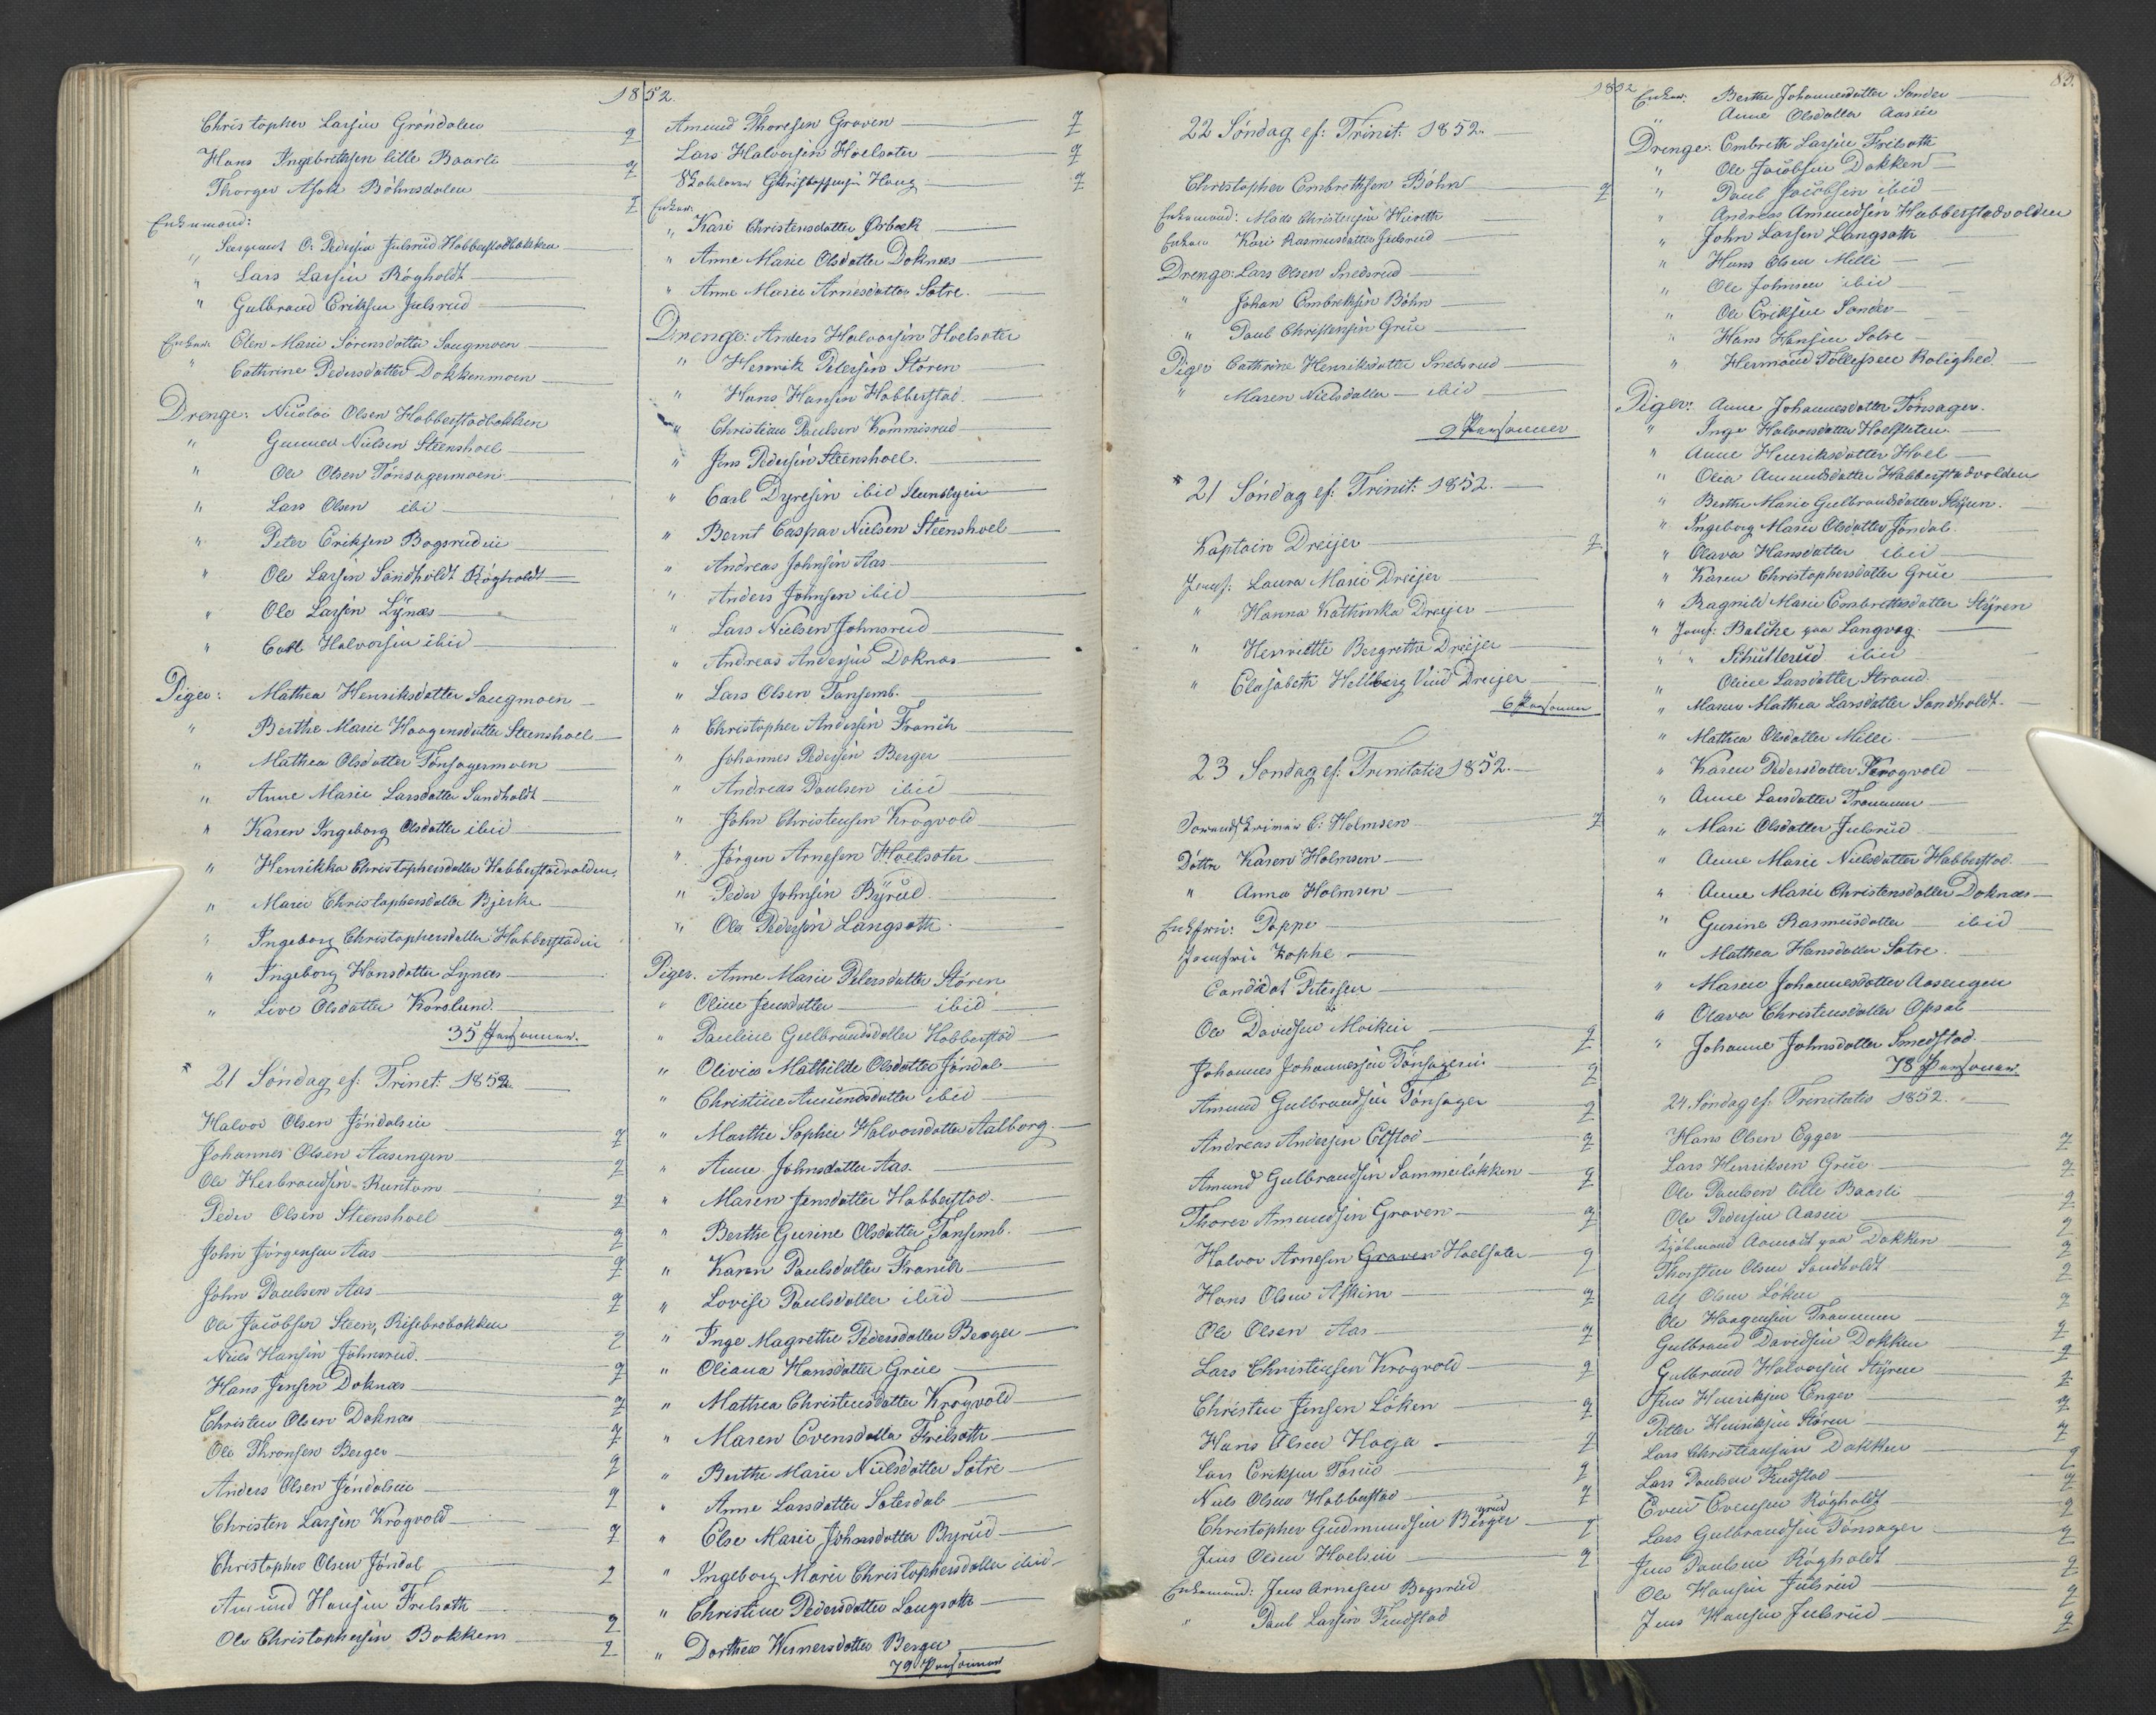 1852.
Christopher Larsen Gröndalen 2
Hans Ingebretsen lille Baarli 2
Thorger Böhnsdalen 2
Enkemænd:
" Sergeant O: Pedersen Julsrud Habberstadbakken
" Lars Larsen Rögholdt
" Gulbrand Eriksen Julsrud
Enker: Elen Marie Sörensdatter Saugmoen
" Cathrine Pedersdatter Dokkenmoen
Drenge: Nicolai Olsen Habberstadbakken
" Gunner Nielsen Steenshoel
" Ole Olsen Tönsagermoen
" Lars Olsen ibi
" Peter Eriksen Bogsrudeie
" Ole Larsen Sandholdt Rögholdt
" Ole Larsen Lÿnæs
" Carl Halvorsen ibid
Piger: Mathea Henriksdatter Saugmoen
" Berthe Marie Haagensdatter Steenshoel
" Mathea Olsdatter Tönsagermoen
" Anne Marie Larsdatter Sandholdt
" Karen Ingeborg Olsdatter ibid
" Henrikka Christophersdatter Habberstadvolden
" Marie Christophersdatter Bjerke
" Ingeborg Christophersdatter Habberstadeie
" Ingeborg Hansdatter Lynæs
" Live Olsdatter Korslund.
35 Personer.
* 21 Söndag ef: Trinit: 1852.
Halvor Olsen Jöndaleie 2
Johannes Olsen Aasengen 2
Ole Herbrandsen Runtom 2
Peder Olsen Steenshoel 2
John Jörgensen Aas 2
John Paulsen Aas 2
Ole Jacobsen Steen, Risebrobakken 2
Niels Hansen Johnsrud. 2
Hans Jensen Doknæs 2
Christen Olsen Doknæs 2
Ole Thronsen Berger 2
Anders Olsen Jöndaleie 2
Christen Larsen Krogvold 2
Christopher Olsen Jöndal 2
Amund Hansen Frilsæth 2
Ole Christophersen Bakken 2
Amund Thoresen Graven 2
Lars Halvorsen Hoelsæter 2
Christophersen Haug 2
Enker:
" Kari Christensdatter Örbæk
" Anne Marie Olsdatter Doknæs
" Anne Marie Arnesdatter Sætre.
Drenge: Anders Halvorsen Hoelsæter
" Henrik Petersen Stören
" Hans Hansen Habberstad
" Christian Paulsen Kommisrud
" Jens Pedersen Steenshoel.
" Carl Dyresen ibid Steensbyeie
" Bernt Caspar Nielsen Steenshoel
" Andreas Johnsen Aas
" Anders Johnsen ibid
" Lars Nielsen Johnsrud
" Andreas Andersen Doknæs
" Lars Olsen Tansemb.
" Christopher Andersen Franik
" Johannes Pedersen Berger
" Andreas Paulsen ibid
" John Christensen Krogvold
" Jörgen Arnesen Hoelsæter
" Peder Johnsen Bÿrud
" Ole Pedersen Langsæth
Piger. Anne Marie Petersdatter Stören
" Oline Jensdatter ibid
" Pauline Gulbrandsdatter Habberstad
" Olivia Mathilde Olsdatter Jöndal
" Christine Amundsdatter ibid
" Marthe Sophie Halvorsdatter Aalborg.
" Anne Johnsdatter Aas.
" Maren Jensdatter Habberstad.
" Berthe Gurine Olsdatter Tansemb.
" Karen Paulsdatter Franik
" Lovise Paulsdatter ibid
" Inge Magrethe Pedersdatter Berger
" Oliana Hansdatter Grue
" Mathea Christensdatter Krogvold
" Maren Evensdatter Frilsæth
" Berthe Marie Nielsdatter Sætre
" Anne Larsdatter Sætesdal
" Else Marie Johnsdatter Byrud
" Ingeborg Marie Christophersdatter ibid
" Christine Pedersdatter Langsæth
" Dorthea Wernersdatter Berger
79 Personer
1852
22 Söndag ef: Trinit: 1852.
Christopher Embrethsen Böhn 2
Enkemænd: Mads Christensen
Enken Kari Rasmusdatter Julsrud
Drenge: Lars Olsen Snedsrud
" Johan Embrethsen Böhn
" Paul Christensen Grue
Piger Cathrine Henriksdatter Snedsrud
" Maren Nielsdatter ibid
9 Personer
* 21 Söndag ef: Trinit: 1852.
Kaptain Dreijer 2
Jomf: Laura Marie Dreijer
" Hanna Kathinka Dreijer
" Henriette Bergrethe Dreijer
" Elisabeth Hellberg Vind Dreijer
6 Personer
23 Sondag ef: Trinitatis 1852.
Sorenskriver C: Holmsen 2
Döttre Karen Holmsen
" Anna Holmsen
Enkfru: Poppe
Jomfru Kophe
Candidat Petersen
Ole Davidsen Moikeie 2
Johannes Johannesen Tönsageeie 2
Amund Gulbrandsen Tönsager 2
Andreas Andersen Elstad 2
Amund Gulbrandsen Sammeilökken 2
Thorer Amundsen Graven 2
Halvor Arnesen Graven Hoelsæter 2
Hans Olsen Askim 2
Ole Olsen Aas 2
Lars Christensen Krogvold 2
Christen Jensen Löken 2
Hans Olsen Haga 2
Lars Eriksen Torud 2
Niels Olsen Habberstad 2
Christopher Gudmundsen Berger yrud 2
Jens Olsen Hoelseie 2
Enkemænd: Jens Arnesen Bogsrud
" Paul Larsen Findstad
83.
Enker: Berthe Johannesdatter Sander
" Anne Olsdatter Aaseie
Drenge: Embreth Larsen Frilsæth
" Ole Jacobsen Dokken
" Paul Jacobsen ibid
" Andreas Amundsen Habberstadvolden
" John Larsen Langsæth
" Hans Olsen Milli
" Ole Johnsen ibid
" Ole Eriksen Sander
" Hans Hansen Sætre
" Hermand Tollefsen Rolighed.
Piger: Anne Johannesdatter Tönsager.
" Inge Halvorsdatter Hoelsæter.
" Anne Henriksdatter Hoel
" Olea Amundsdatter Habberstadvolden
" Berthe Marie Gulbrandsdatter Stÿren.
" Ingeborg Marie Olsdatter Jöndal.
" Olava Hansdatter ibid
" Karen Christophersdatter Grue
" Ragnild Marie Embrethsdatter Stÿren
" Jomf: Balche paa Langvag.
" " Schulterud ibid
" Oline Larsdatter Strand.
" Maren Mathea Larsdatter Sandholdt.
" Mathea Olsdatter Milli
" Karen Pedersdatter Krogvold
" Anne Larsdatter Trannum
" Mari Olsdatter Julsrud
" Anne Marie Nielsdatter Habberstad.
" Anne Marie Christensdatter Doknæs
" Gurine Rasmusdatter ibid
" Mathea Hansdatter Sætre.
" Maren Johannesdatter Aasengen
" Olava Christensdatter Opsal
" Johanne Johnsdatter Smedstad.
78 Personer
24 Söndag ef: Trinitatis 1852.
Hans Olsen Egger 2
Lars Henriksen Grue 2
Ole Paulsen lille Baarli 2
Ole Pedersen Aaseie 2
Kjöbmand Aamodt paa Dokken 2
Thorsten Olsen Sandholdt 2
Alf Olsen Löken 2
Ole Haagensen Trannum 2
Gulbrand Davidsen Dokken 2
Gulbrand Halvorsen Stÿren 2
Jens Henriksen Enger 2
Petter Henriksen Stören 2
Lars Christiansen Dokken 2
Lars Paulsen Findstad 2
Even Evensen Rögholdt 2
Lars Gulbrandsen Tönsager 2
Jens Paulsen Rögholdt 2
Ole Hansen Julsrud 2
Jens Hansen Julsrud 2